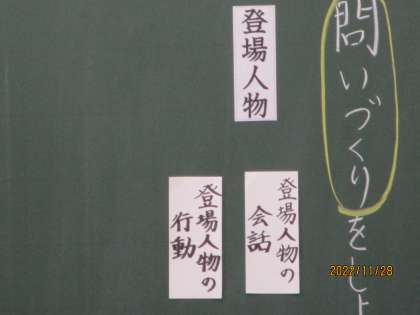 問いづくりをしよ
登場人物
登場人物の
会話
登場人物の
行動
2022/11/28